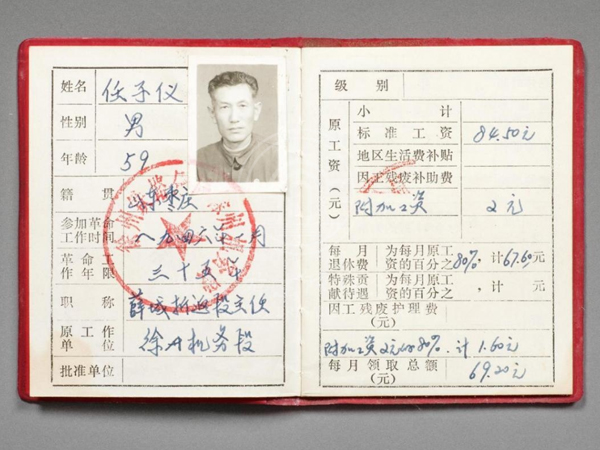 姓名 任子仪
性别 男
年龄 59
籍贯 山东枣庄
参加革命
工作时间 一九四六年 月
革命工
作年限 三十五年
职称
原工作
单位 徐州机务段
批准单位
级别
原工资(元)
小计
标准工资 84.50元
地区生活费补贴
因工残废补助费
附加工资 2元
每月 为每月原工
退休费 资的百分之80%, 计67.60元
特殊贡 为每月原工
献待遇 资的百分之 , 计 元
因工残废护理费
(元)
附加工资2元的80%. 计1.60元
每月领取总额
(元) 69.20元